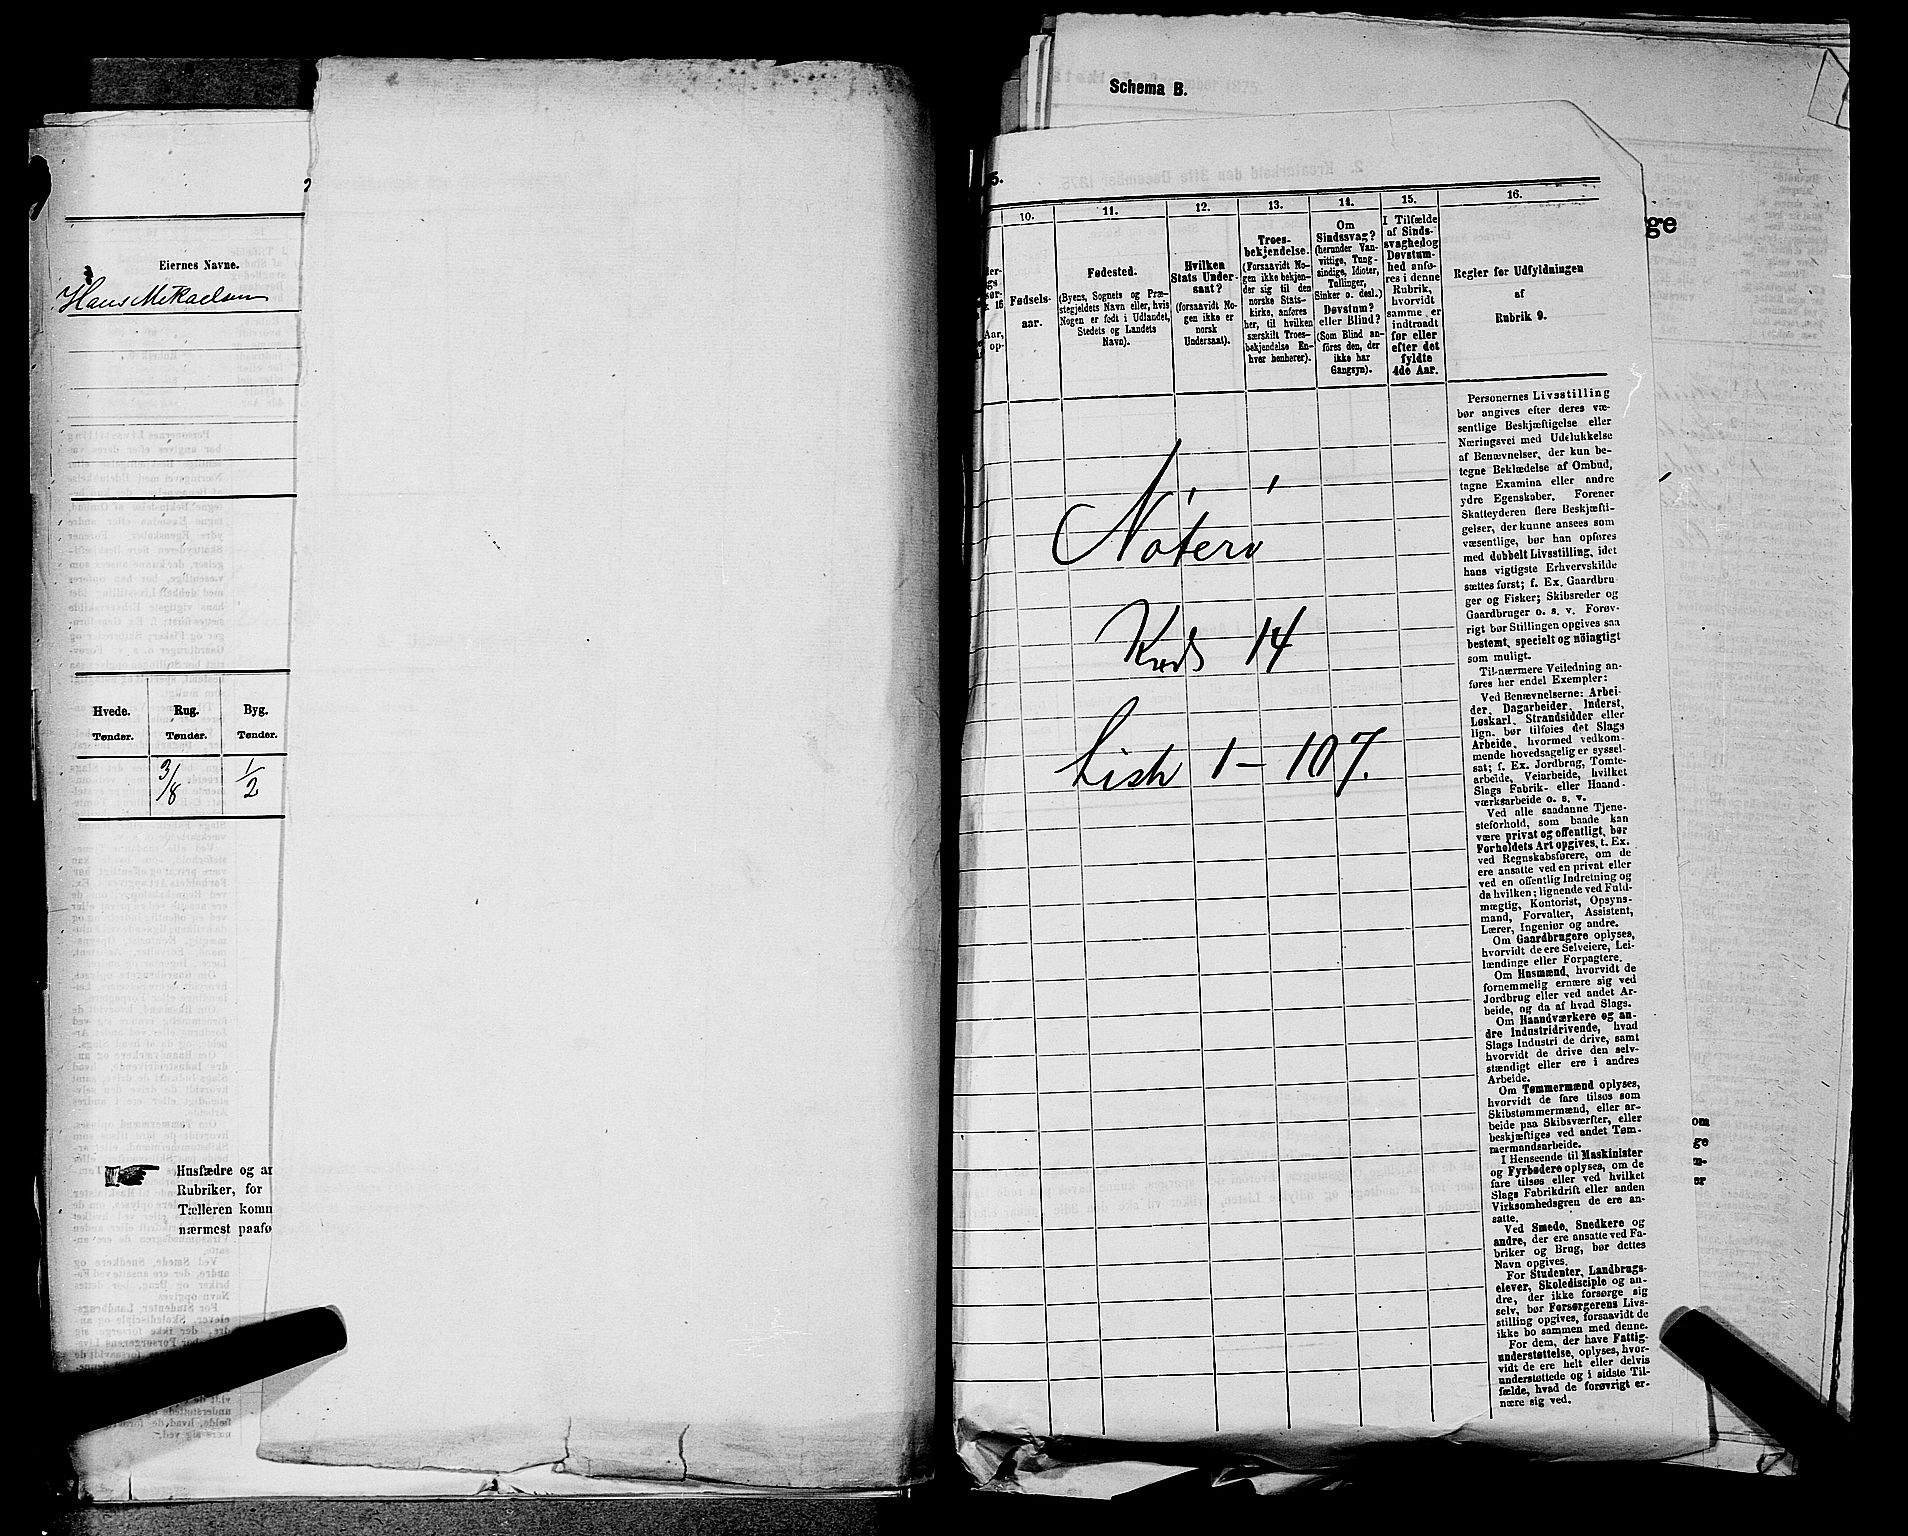 Eiernes Navne.
Hans Mikaelsen
Hvede. Rug. Byg.
Tønder. Tønder. Tønder.
3/8 1/2
Husfædre og an
Rubriker, for
Tælleren komm
nærmest paafø
Schema B.
5.
10. 11. 12. 13. 14. 15. 16.
Fødsels-
aar.
Fødested.
(Byens, Sognets og Præ-
stegjeldets Navn eller, hvis
Nogen er født i Udlandet,
Stedets og Landets
Navn).
Hvilken
Stats Under-
saat?
(forsaavidt No-
gen ikke er
norsk
Undersaat).
Troes-
bekjendelse.
(Forsaavidt No-
gen ikke bekjen-
der sig til den
norske Stats-
kirke, anføres
her, til hvilken
særskilt Troes-
bekjendelse En-
hver henhører).
Om
Sindssvag?
(herunder Van-
vittige, Tung-
sindige, Idioter,
Tullinger,
Sinker o. desl.)
Døvstum?
eller Blind?
(Som Blind an-
føres den, der
ikke har
Gangsyn).
I Tilfælde
af Sinds-
svaghed og
Døvstum-
hed anfø-
res i denne
Rubrik,
hvorvidt
samme er
indtraadt
før eller
efter det
fyldte
4de Aar.
Regler for Udfyldningen
af
Rubrik 9.
ge
Nøterø
Kreds 14
Liste 1 - 107.
Personernes Livsstilling
bør angives efter deres væ-
sentlige Beskjæftigelse eller
Næringsvei med Udelukkelse
af Benævnelser, der kun be-
tegne Beklædelse af Ombud,
tagne Examina eller andre
ydre Egenskaber. Forener
Skatteyderen flere Beskjæfti-
gelser, der kunne ansees som
væsentlige, bør han opføres
med dobbelt Livsstilling, idet
hans vigtigste Erhvervskilde
sættes først; f. Ex. Gaardbru-
ger og Fisker; Skibsreder og
Gaardbruger o. s. v. Forøv-
rigt bør Stillingen opgives saa
bestemt, specielt og nöiagtigt
som muligt.
Til nærmere Veiledning an-
føres her endel Exempler:
Ved Benævnelserne: Arbei-
der, Dagarbeider, Inderst,
Løskarl, Strandsidder eller
lign. bør tilføies det Slags
Arbeide, hvormed vedkom-
mende hovedsagelig er syssel-
sat; f. Ex. Jordbrug, Tomte-
arbeide, Veiarbeide, hvilket
Slags Fabrik- eller Haand-
værksarbeide o. s. v.
Ved alle saadanne Tjene-
steforhold, som baade kan
være privat og offentligt, bør
Forholdets Art opgives, t. Ex.
ved Regnskabsførere, om de
ere ansatte ved en privat eller
ved en offentlig Indretning og
da hvilken; lignende ved Fuld-
mægtig, Kontorist, Opsyns-
mand, Forvalter, Assistent,
Lærer, Ingeniør og andre.
Om Gaardbrugere oplyses,
hvorvidt de ere Selveiere, Lei-
lændinge eller Forpagtere.
Om Husmænd, hvorvidt de
fornemmelig ernære sig ved
Jordbrug eller ved andet Ar-
beide, og da af hvad Slags.
Om Haandværkere og an-
dre Industridrivende, hvad
Slags Industri de drive, samt
hvorvidt de drive den selv-
stændigt eller ere i andres
Arbeide.
Om Tømmermænd oplyses,
hvorvidt de fare tilsøs som
Skibstømmermænd, eller ar-
beide paa Skibsværfter, eller
beskjæftiges ved andet Tøm-
mermandsarbeide.
I Henseende til Maskinister
og Fyrbødere oplyses, om de
fare tilsøs eller ved hvilket
Slags Fabrikdrift eller anden
Virksomhedsgren de ere an-
satte.
Ved Smede, Snedkere og
andre, der ere ansatte ved Fa-
briker og Brug, bør dettes
Navn opgives.
For Studenter, Landbrugs-
elever, Skoledisciple og an-
dre, der ikke forsørge sig
selv, bør Forsørgerens Livs-
stilling opgives, forsaavidt de
ikke bo sammen med denne.
For dem, der have Fattig-
understøttelse, oplyses, hvor-
vidt de ere helt eller delvis
understøttede og i sidste Til-
fælde, hvad de forøvrigt er-
nære sig ved.